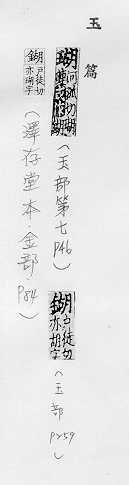 玉篇
瑚
(玉部第七 P46)
鍸戶徒切
亦胡字
(玉部 P259)
鍸戶徒切
亦瑚字
(澤存堂本·金部·P84)